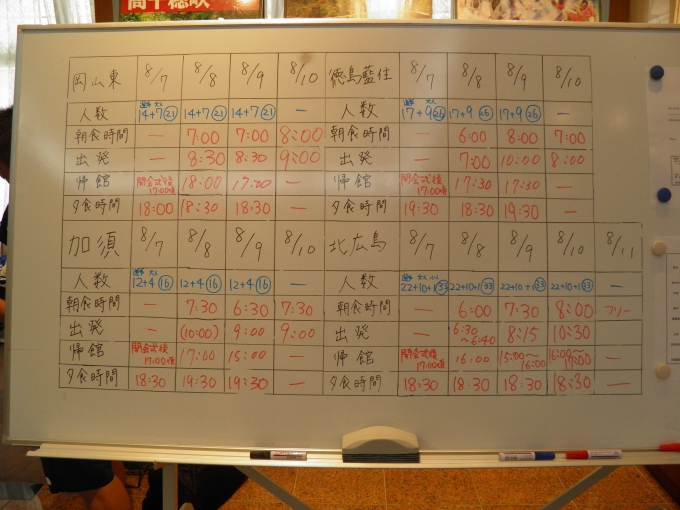 高千穂峡
岡山東 8/7 8/8 8/9 8/10 徳島藍住 8/7 8/8 8/9 8/10
人数 選手 大人 14+7㉑ 14+7㉑ 14+7㉑ — 人数 選手 大人 17+9㉖ 17+9㉖ 17+9㉖ —
朝食時間 — 7:00 7:00 8:00 朝食時間 — 6:00 8:00 7:00
出発 — 8:30 8:30 9:00 出発 — 7:00 10:00 8:00
帰館 開会式後 17:00頃 18:00 17:00 — 帰館 開会式後 17:00頃 17:30 17:30 —
夕食時間 18:00 18:30 18:30 — 夕食時間 19:30 18:30 19:30 —
加須 8/7 8/8 8/9 8/10 北広島 8/7 8/8 8/9 8/10 8/11
人数 選手 大人 12+4⑯ 12+4⑯ 12+4⑯ — 人数 選手 大人 小人 22+10+1㉝ 22+10+1㉝ 22+10+1㉝ 22+10+1㉝ —
朝食時間 — 7:30 6:30 7:30 朝食時間 — 6:00 7:30 8:00 フリー
出発 — (10:00) 9:00 9:00 出発 — 6:30〜6:40 8:15 10:30 —
帰館 開会式後 17:00頃 17:00 15:00 — 帰館 開会式後 17:00頃 16:00 15:00〜16:00 16:00〜17:00 —
夕食時間 18:30 19:30 19:30 — 夕食時間 18:30 18:30 18:30 18:30 —